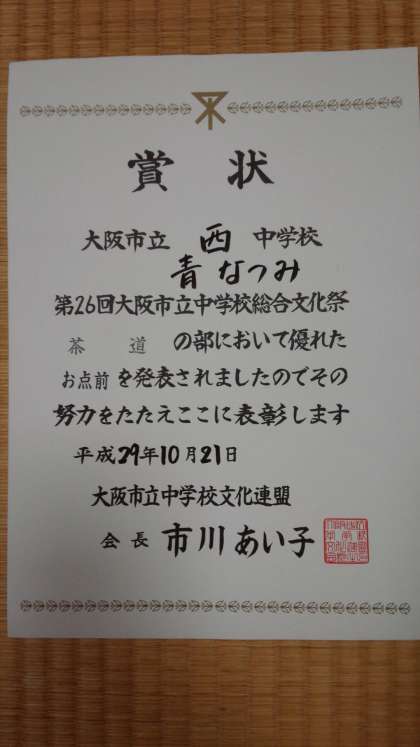 賞状
大阪市立 西 中学校
青 なつみ
第26回大阪市立中学校総合文化祭
茶道 の部において優れた
お点前 を発表されましたのでその
努力をたたえここに表彰します
平成29年10月21日
大阪市立中学校文化連盟
会長 市川 あい子